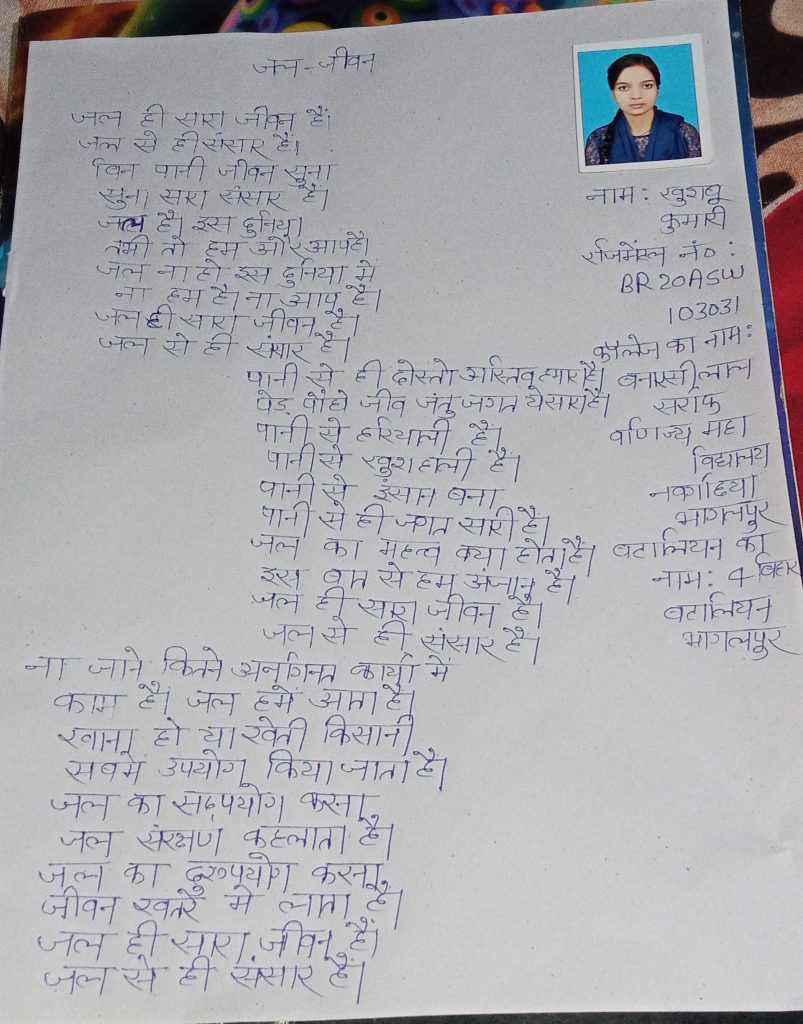 जल - जीवन
जल ही सारा जीवन हैं।
जल से ही संसार हैं।
बिन पानी जीवन सुना
सुना सारा संसार हैं।
जल है। इस दुनिया
तभी तो हम और आप है।
जल ना हो इस दुनिया में
ना हम है। ना आप है।
जल ही सारा जीवन है।
जल से ही संसार है।
पानी से ही दोस्तो अस्तित्व हमारा है।
पेड़ पौधे जीव जंतु जगत ये सारा है।
पानी से हरियाली है।
पानी से खुशहाली है।
पानी से इंसान बना
पानी से ही जगत सारी है।
जल का महत्व क्या होता है।
इस बात से हम अंजान है।
जल ही सारा जीवन है।
जल से ही संसार है।
ना जाने कितने अनगिनत कार्यो में
काम है। जल हमें आता है।
खाना हो या खेती किसानी
सबमें उपयोग किया जाता है।
जल का सदुपयोग करना
जल संरक्षण कहलाता है।
जल का दुरुपयोग करना
जीवन खतरे में लाता है।
जल ही सारा जीवन हैं।
जल से ही संसार हैं।
नाम: खुशबू
कुमारी
रजिमेंटल नं०:
BR20ASW
103031
कॉलेज का नाम:
बनारसी लाल
सर्राफ
वाणिज्य महा
विद्यालय
नवगछिया
भागलपुर
बटालियन का
नाम: 4 बिहार
बटालियन
भागलपुर